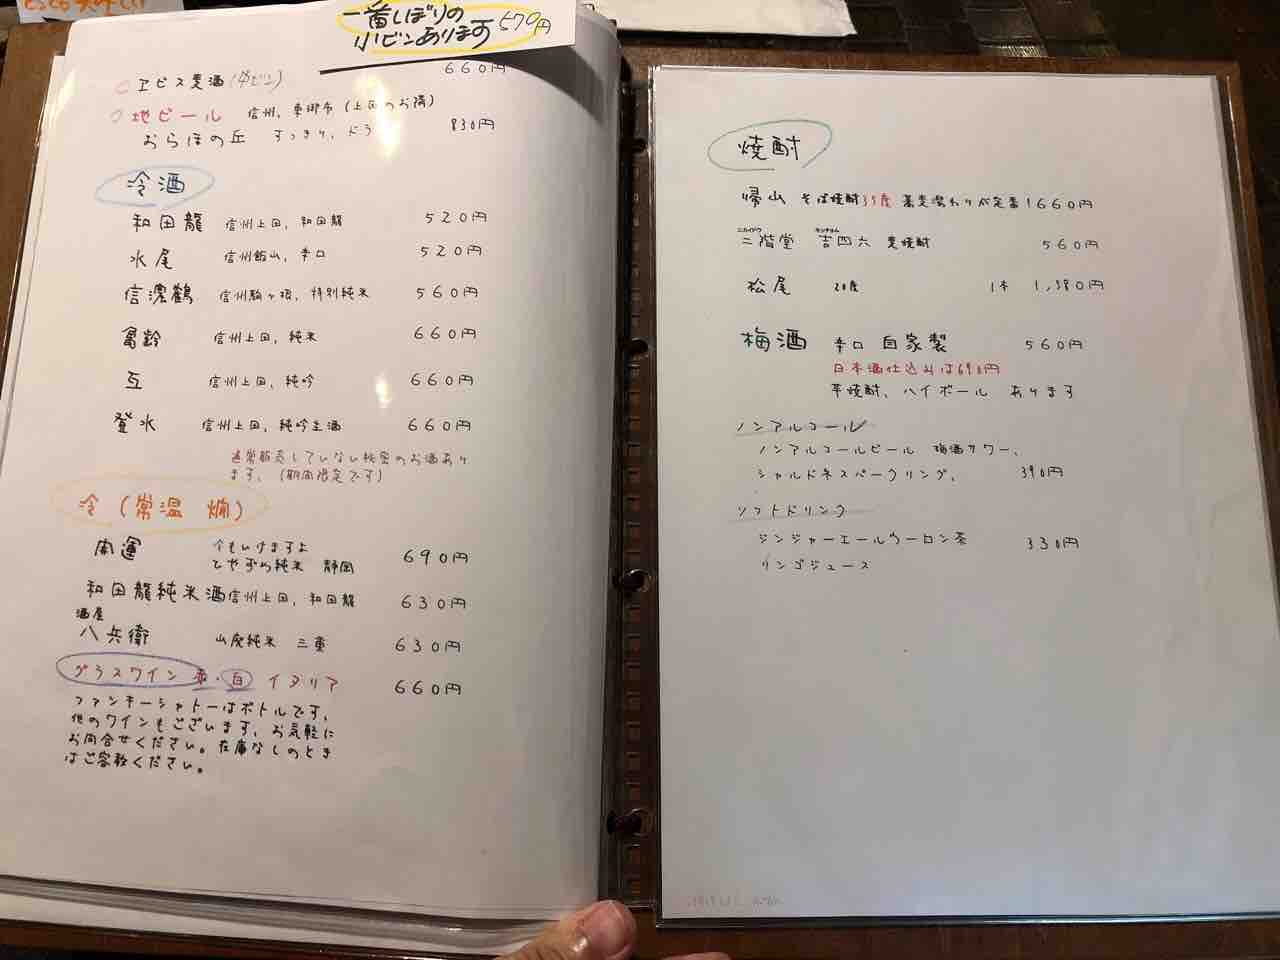 一番しぼりの
小ビンあります 570円
ヱビス麦酒(中ビン) 660円
地ビール 信州、東御市(上田のお隣)
おらほの丘 すっきり、ドラ 830円
冷酒
和田龍 信州上田、和田龍 520円
水尾 信州飯山、辛口 520円
信濃鶴 信州駒ヶ根、特別純米 560円
亀齢 信州上田、純米 660円
互 信州上田、純吟 660円
登水 信州上田、純吟生酒 660円
通常販売していない秘密のお酒あり
ます、(期間限定です)
冷(常温 燗)
開運 今もいけますよ
ひやづめ純米 静岡 690円
和田龍純米酒 信州上田、和田龍 630円
酒屋
八兵衛 山廃純米 三重 630円
グラスワイン 赤・白 イタリア 660円
ファンキーシャトーはボトルです、
他のワインもございます、お気軽に
お問合せください。在庫なしのとき
はご容赦ください。
焼酎
帰山 そば焼酎35度 蕎麦湯わりが定番! 660円
ニカイドウ キッチョム
二階堂 吉四六 麦焼酎 560円
松尾 20度 1本 1,380円
梅酒 辛口 自家製 560円
日本酒仕込みは690円
芋焼酎、ハイボール あります
ノンアルコール
ノンアルコールビール 梅酒サワー、
シャルドネスパークリング、 390円
ソフトドリンク
ジンジャーエール ウーロン茶 330円
リンゴジュース